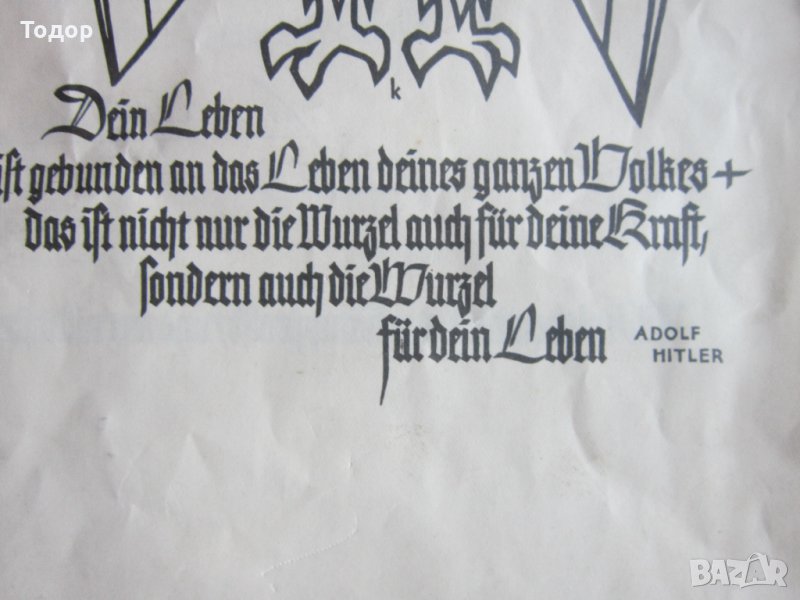 Todor
k
Dein Leben
ist gebunden an das Leben deines ganzen Volkes +
das ist nicht nur die Wurzel auch für deine Kraft,
sondern auch die Wurzel
für dein Leben
ADOLF
HITLER
BAZAR